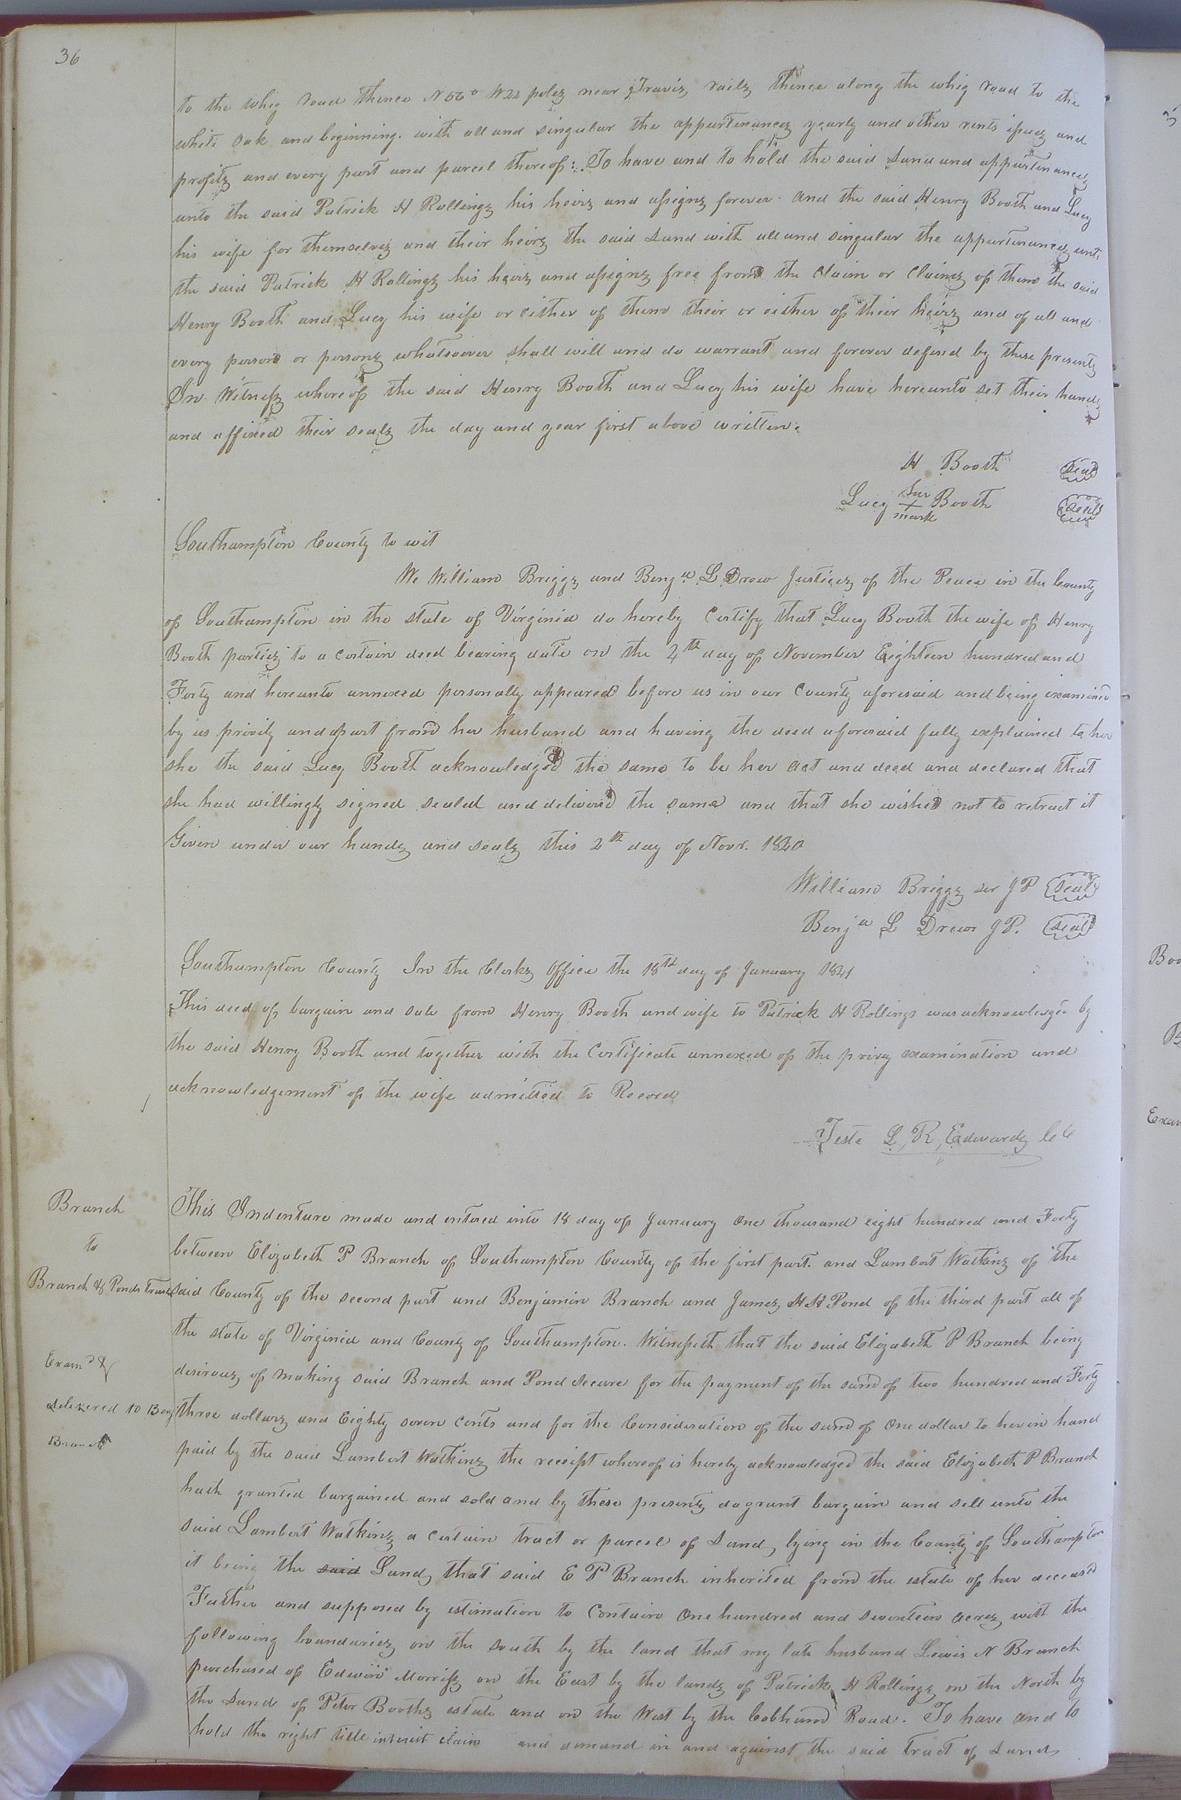 36
to the whig road thence N 56° W 22 poles near Travis rails thence along the whig road to the
white oak and beginning. with all and singular the appurtenances yearly and other rents issues and
profits and every part and parcel thereof: To have and to hold the said Land and appurtenances
unto the said Patrick H Rollings his heirs and assigns forever. And the said Henry Booth and Lucy
his wife for themselves and their heirs the said Land with all and singular the appurtenances unto
the said Patrick H Rollings his heirs and assigns free from the Claim or Claims of them the said
Henry Booth and Lucy his wife or either of them their or either of their heirs and of all and
every person or persons whatsoever shall will and do warrant and forever defend by these presents
In Witness whereof the said Henry Booth and Lucy his wife have hereunto set their hands
and affixed their seals the day and year first above written.
H Booth Seal
Lucy her + mark Booth Seal
Southampton County to wit
We William Briggs and Benja L Drew Justices of the Peace in the County
of Southampton in the state of Virginia do hereby Certify that Lucy Booth the wife of Henry
Booth parties to a certain deed bearing date on the 2th day of November Eighteen hundred and
Forty and hereunto annexed personally appeared before us in our County aforesaid and being examined
by us privily and apart from her husband and having the deed aforesaid fully explained to her
she the said Lucy Booth acknowledged the same to be her act and deed and declared that
she had willingly signed sealed and delivered the same and that she wished not to retract it
Given under our hands and seals this 2th day of Novr. 1840
William Briggs ser JP Seal
Benja L Drew JP. Seal
Southampton County In the Clerks Office the 18th day of January 1841
This deed of bargain and sale from Henry Booth and wife to Patrick H Rollings was acknowledged by
the said Henry Booth and together with the Certificate annexed of the privy examination and
acknowledgement of the wife admitted to Record
Teste L, R, Edwards CC
Branch
to
Branch & Ponds Trust
Examd &
delivered to Benj
Branch
This Indenture made and entered into 18 day of January One thousand eight hundred and Forty
between Elizabeth P Branch of Southampton County of the first part. and Lambert Watkins of the
said County of the second part and Benjamin Branch and James H H Pond of the third part all of
the state of Virginia and County of Southampton. Witnesseth that the said Elizabeth P Branch being
desirous of making said Branch and Pond secure for the payment of the sum of two hundred and Forty
three dollars and Eighty seven cents and for the Consideration of the sum of One dollar to her in hand
paid by the said Lambert Watkins the receipt whereof is hereby acknowledged the said Elizabeth P Branch
hath granted bargained and sold and by these presents do grant bargain and sell unto the
said Lambert Watkins a certain tract or parcel of Land, lying in the County of Southampton
it being the said Land, that said E P Branch inherited from the estate of her deceasd
Father and supposed by estimation to Contain One hundred and seventeen acres, with the
following boundaries, on the south by the land that my late husband Lewis N Branch
purchased of Edwin Morriss, on the East by the lands of Patrick H Rollings, on the North by
the Land of Peter Booths estate and on the West by the Cobham Road. To have and to
hold the right title interest claim and demand in and against the said tract of Land,
Boo
B
Exam